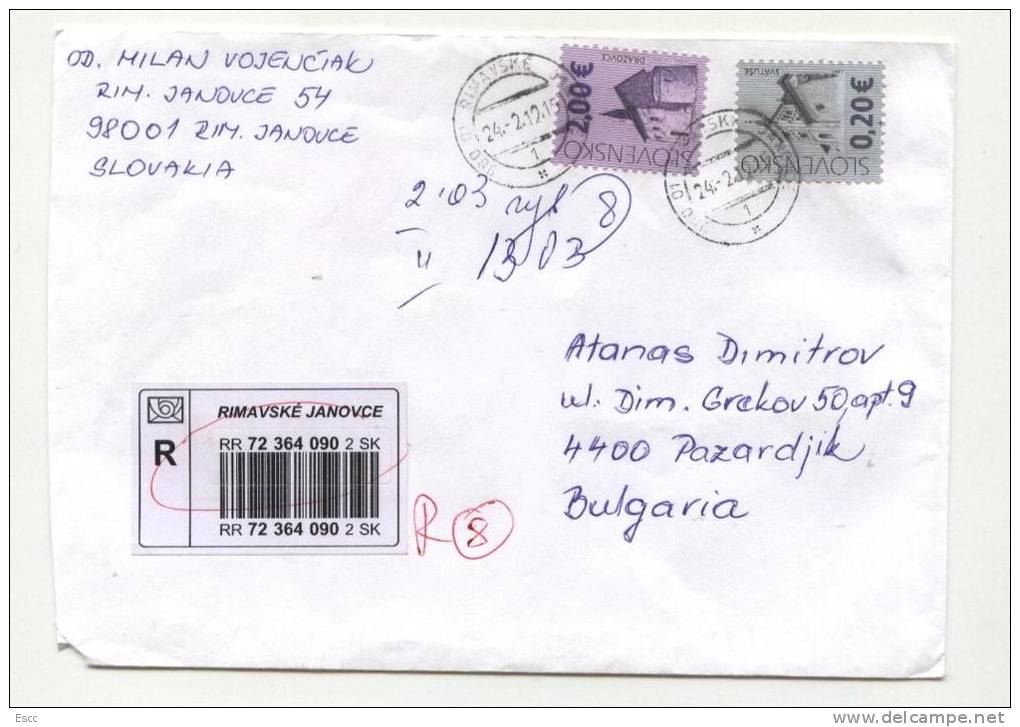 OD. MILAN VOJENČIAK
RIM. JANOVCE 54
98001 RIM. JANOVCE
SLOVAKIA
RIMAVSKÉ
24.-2.12.15
980 01
1
*
2,00€
DRAŽOVCE
SLOVENSKO
0,20€
SVÄTUŠE
SLOVENSKO
24.-2.
1
*
2.03
8
" 1303
Atanas Dimitrov
ul. Dim. Grekov 50, apt. 9
4400 Pazardjik
Bulgaria
RIMAVSKÉ JANOVCE
R
RR 72 364 090 2 SK
RR 72 364 090 2 SK
R 8
Escc
delcampe.net